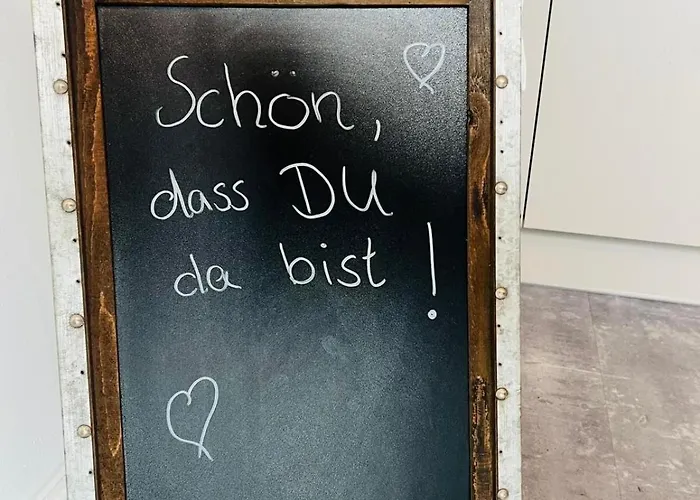 Schön,
dass DU
da bist !